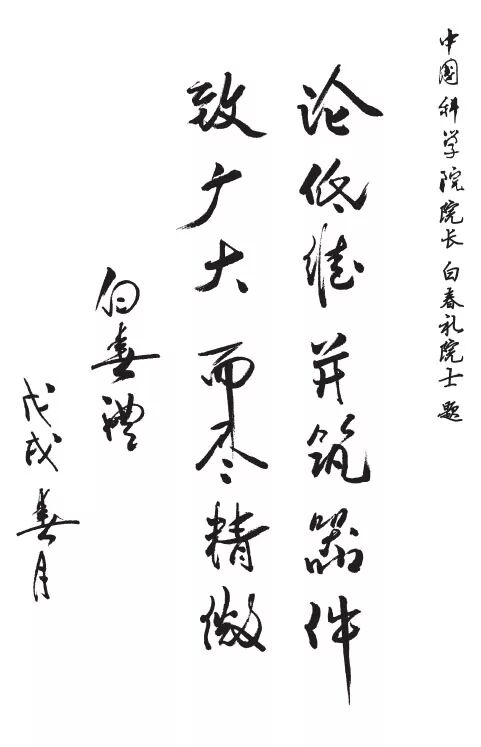 中国科学院院长 白春礼院士 题
论低维 并筑器件
致广大 而尽精微
白春礼
戊戌春月